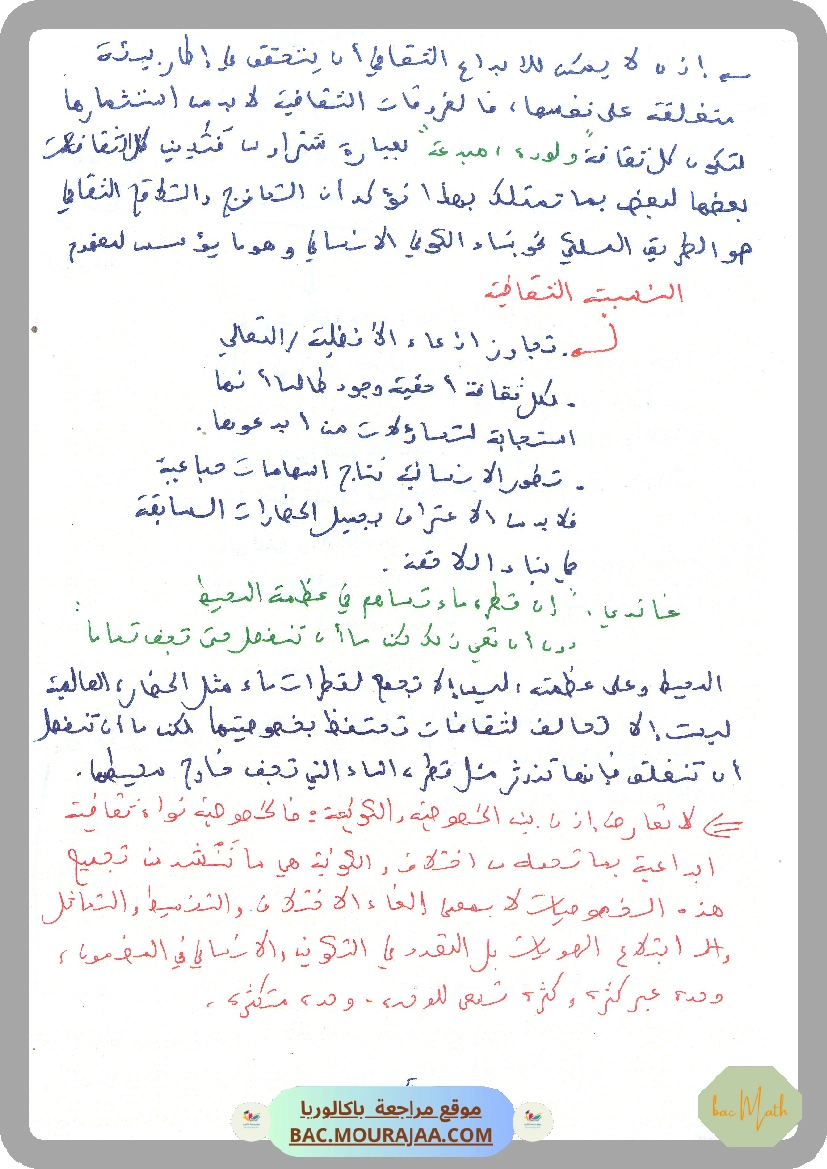 إذن لا يمكن للإبداع الثقافي أن يتحقق في إطار بيئة
منغلقة على نفسها، فالفروقات الثقافية لا بد من استثمارها
لتكون كل ثقافة "ولودة، مبدعة" لعبارة شتراوس فتُدين كل الثقافات
بعضها لبعض بما تمتلك بهذا نؤكد أن التمازج والتلاقح الثقافي
هو الطريق الملكي نحو بناء الكوني الإنساني وهو ما يؤسس لمفهوم
النسبية الثقافية
. تجاوز ادعاء الأفضلية / التعالي
. لكل ثقافة أحقية وجود طالما أنها
استجابة لتساؤلات من أبدعوها.
. تطور الإنسانية نتاج اسهامات جماعية
فلا بد من الاعتراف بجميل الحضارات السابقة
في بناء اللاحقة.
غاندي: "إن قطرة ماء تساهم في عظمة المحيط
دون أن تعي ذلك لكن ما أن تنفصل حتى تجف تماما":
المحيط وعلى عظمته، ليس إلا تجمع لقطرات ماء مثل الحضارة العالمية
ليست إلا تحالف لثقافات تحتفظ بخصوصيتها لكن ما أن تنفصل
أن تنغلق فإنها تندثر مثل قطرة الماء التي تجف خارج محيطها.
لا تعارض إذن بين الخصوصية والكونية: فالخصوصية نواة ثقافية
ابداعية بما تحمله من اختلاف والكونية هي ما تُنشد من تجميع
هذه الخصوصيات لا بمعنى إلغاء الاختلاف والتنميط والتماثل
و ابتلاع الهويات بل التعدد في التكوين والإنساني في المضمون،
وحدة عبر كثرة وكثرة تسعى للوحدة. وحدة متكثرة.
موقع مراجعة باكالوريا
BAC.MOURAJAA.COM
bac Math